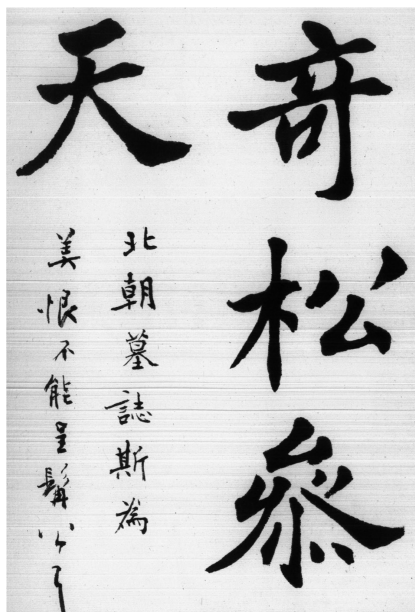 奇松參
天
北朝墓誌斯為
美恨不能呈髯公